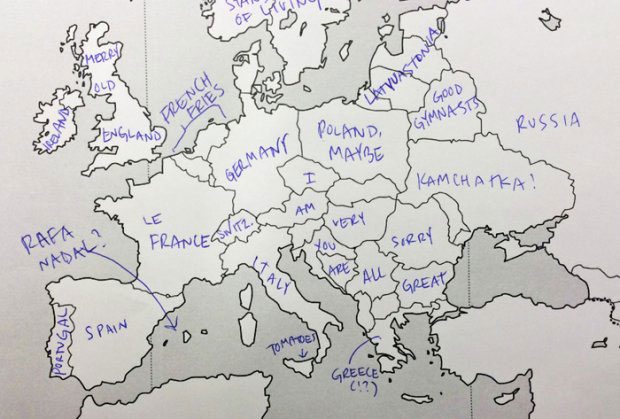 STAN
OF LIVING
MERRY
OLD
ENGLAND
IRELAND
FRENCH
FRIES
LATWASTONIA
GOOD
GYMNASTS
RUSSIA
GERMANY
POLAND,
MAYBE
I
KAMCHATKA!
LE
FRANCE
SWITZ.
AM
VERY
SORRY
YOU
ARE
ALL
GREAT
ITALY
RAFA
NADAL?
PORTUGAL
SPAIN
TOMATOES
GREECE
(!?)